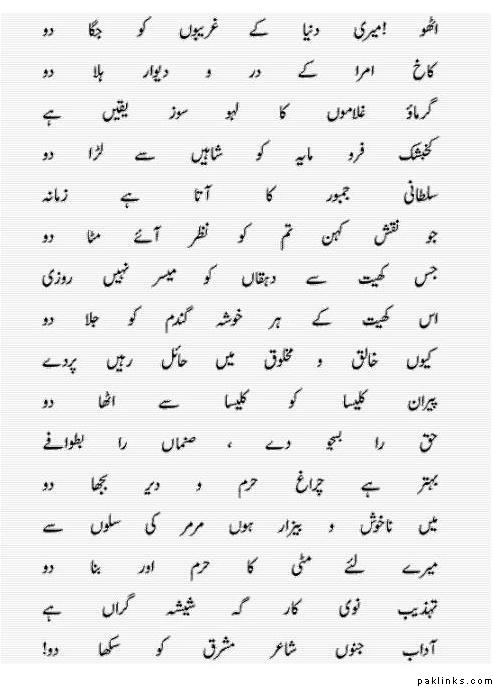 اٹھو !میری دنیا کے غریبوں کو جگا دو
کاخ امرا کے در و دیوار ہلا دو
گرماؤ غلاموں کا لہو سوز یقیں ہے
کنجشک فرو مایہ کو شاہیں سے لڑا دو
سلطانی جمہور کا آتا ہے زمانہ
جو نقش کہن تم کو نظر آئے مٹا دو
جس کھیت سے دہقاں کو میسر نہیں روزی
اس کھیت کے ہر خوشہ گندم کو جلا دو
کیوں خالق و مخلوق میں حائل رہیں پردے
پیران کلیسا کو کلیسا سے اٹھا دو
حق را بسجو دے ، صنماں را بطوافے
بہتر ہے چراغ حرم و دیر بجھا دو
میں ناخوش و بیزار ہوں مرمر کی سلوں سے
میرے لئے مٹی کا حرم اور بنا دو
تہذیب نوی کار گہ شیشہ گراں ہے
آداب جنوں شاعر مشرق کو سکھا دو!
paklinks.com